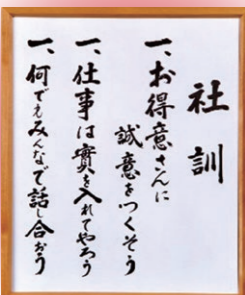 社訓
一、お得意さんに
誠意をつくそう
一、仕事は實を入れてやろう
一、何でもみんなで話し合おう